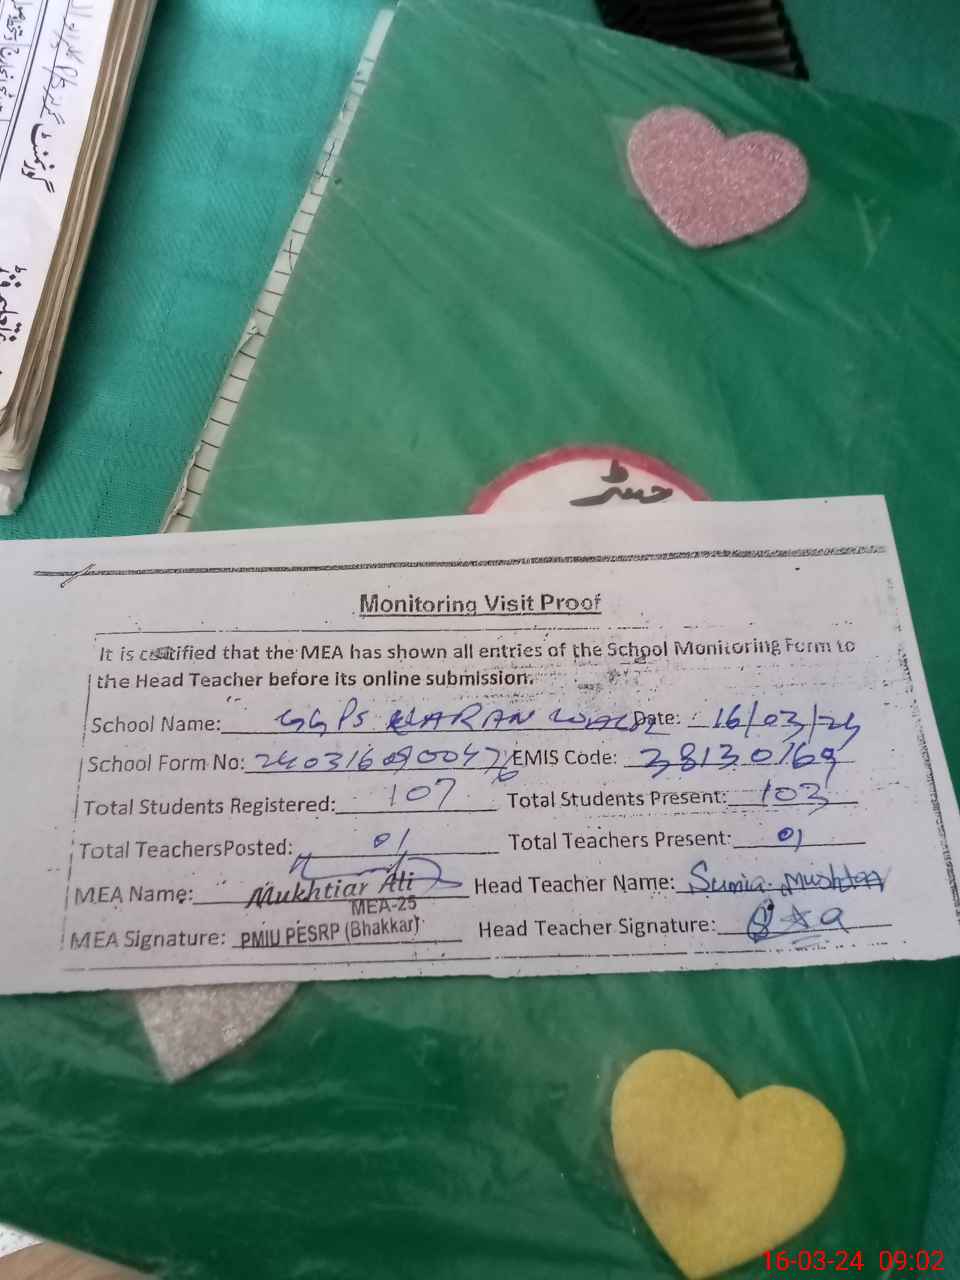 گورنمنٹ گرلز
رجسٹر
Monitoring Visit Proof
It is certified that the MEA has shown all entries of the School Monitoring Form to
the Head Teacher before its online submission.
School Name: GGPS Date: 16/03/24
School Form No: EMIS Code: 38130169
Total Students Registered: 107 Total Students Present: 103
Total TeachersPosted: 01 Total Teachers Present: 01
MEA Name: Mukhtiar Ali Head Teacher Name: Sumia Mushtaq
MEA-25
MEA Signature: PMIU PESRP (Bhakkar) Head Teacher Signature:
16-03-24 09:02